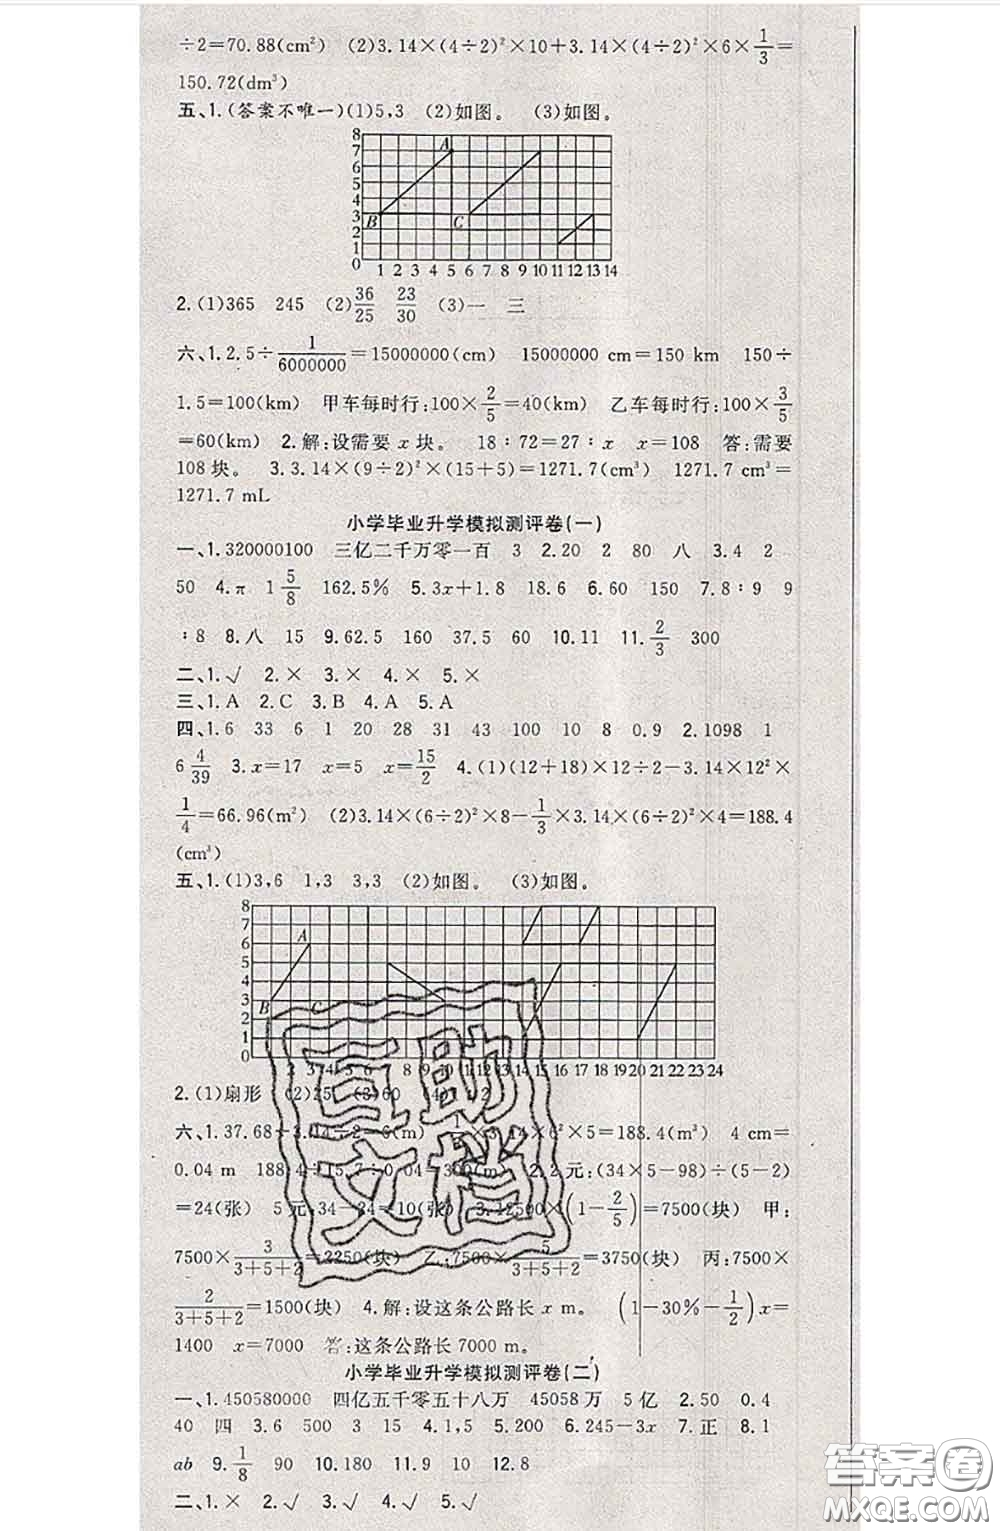 ÷2=70.88(cm²) (2)3.14×(4÷2)²×10+3.14×(4÷2)²×6×1/3=
150.72(dm³)
五、1.(答案不唯一)(1)5,3 (2)如图。 (3)如图。
8
7
6
5
4
3
2
1
0
A
B
C
1 2 3 4 5 6 7 8 9 10 11 12 13 14
2.(1)365 245 (2)36/25 23/30 (3)一 三
六、1.2.5÷1/6000000=15000000(cm) 15000000 cm=150 km 150÷
1.5=100(km) 甲车每时行:100×2/5=40(km) 乙车每时行:100×3/5
=60(km) 2.解:设需要 x 块。 18∶72=27∶x x=108 答:需要
108块。 3.3.14×(9÷2)²×(15+5)=1271.7(cm³) 1271.7 cm³=
1271.7 mL
小学毕业升学模拟测评卷(一)
一、1.320000100 三亿二千万零一百 3 2.20 2 80 八 3.4 2
50 4.π 1 5/8 162.5% 5.3x+1.8 18.6 6.60 150 7.8∶9 9
∶8 8.八 15 9.62.5 160 37.5 60 10.11 11.2/3 300
二、1.√ 2.× 3.× 4.× 5.×
三、1.A 2.C 3.B 4.A 5.A
四、1.6 33 6 1 20 28 31 43 100 10 8 0.9 2.1098 1
6 4/39 3.x=17 x=5 x=15/2 4.(1)(12+18)×12÷2-3.14×12²×
1/4=66.96(m²) (2)3.14×(6÷2)²×8-1/3×3.14×(6÷2)²×4=188.4
(cm³)
五、1.(1)3,6 1,3 3,3 (2)如图。 (3)如图。
8
7
6
5
4
3
2
1
0
A
B
C
2 3 4 5 6 7 8 9 10 11 12 13 14 15 16 17 18 19 20 21 22 23 24
2.(1)扇形 (2)25 (3)60 40 12
六、1.37.68÷3.14÷2=6(m) 1/3×3.14×6²×5=188.4(m³) 4 cm=
0.04 m 188.4÷15.7÷0.04=300(m) 2.2元:(34×5-98)÷(5-2)
=24(张) 5元:34-24=10(张) 3.12500×(1-2/5)=7500(块) 甲:
7500×3/3+5+2=2250(块) 乙:7500×5/3+5+2=3750(块) 丙:7500×
2/3+5+2=1500(块) 4.解:设这条公路长 x m。 (1-30%-1/2)x=
1400 x=7000 答:这条公路长 7000 m。
小学毕业升学模拟测评卷(二)
一、1.450580000 四亿五千零五十八万 45058万 5亿 2.50 0.4
40 四 3.6 500 3 15 4.1,5 5.200 6.245-3x 7.正 8.1
ab 9.1/8 90 10.180 11.9 10 12.8
二、1.× 2.√ 3.√ 4.√ 5.√
直助
文档
答案卷
MXQE.COM